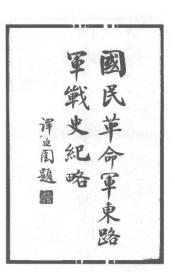 國民革命軍東路
軍戰史紀略
譚延闓題